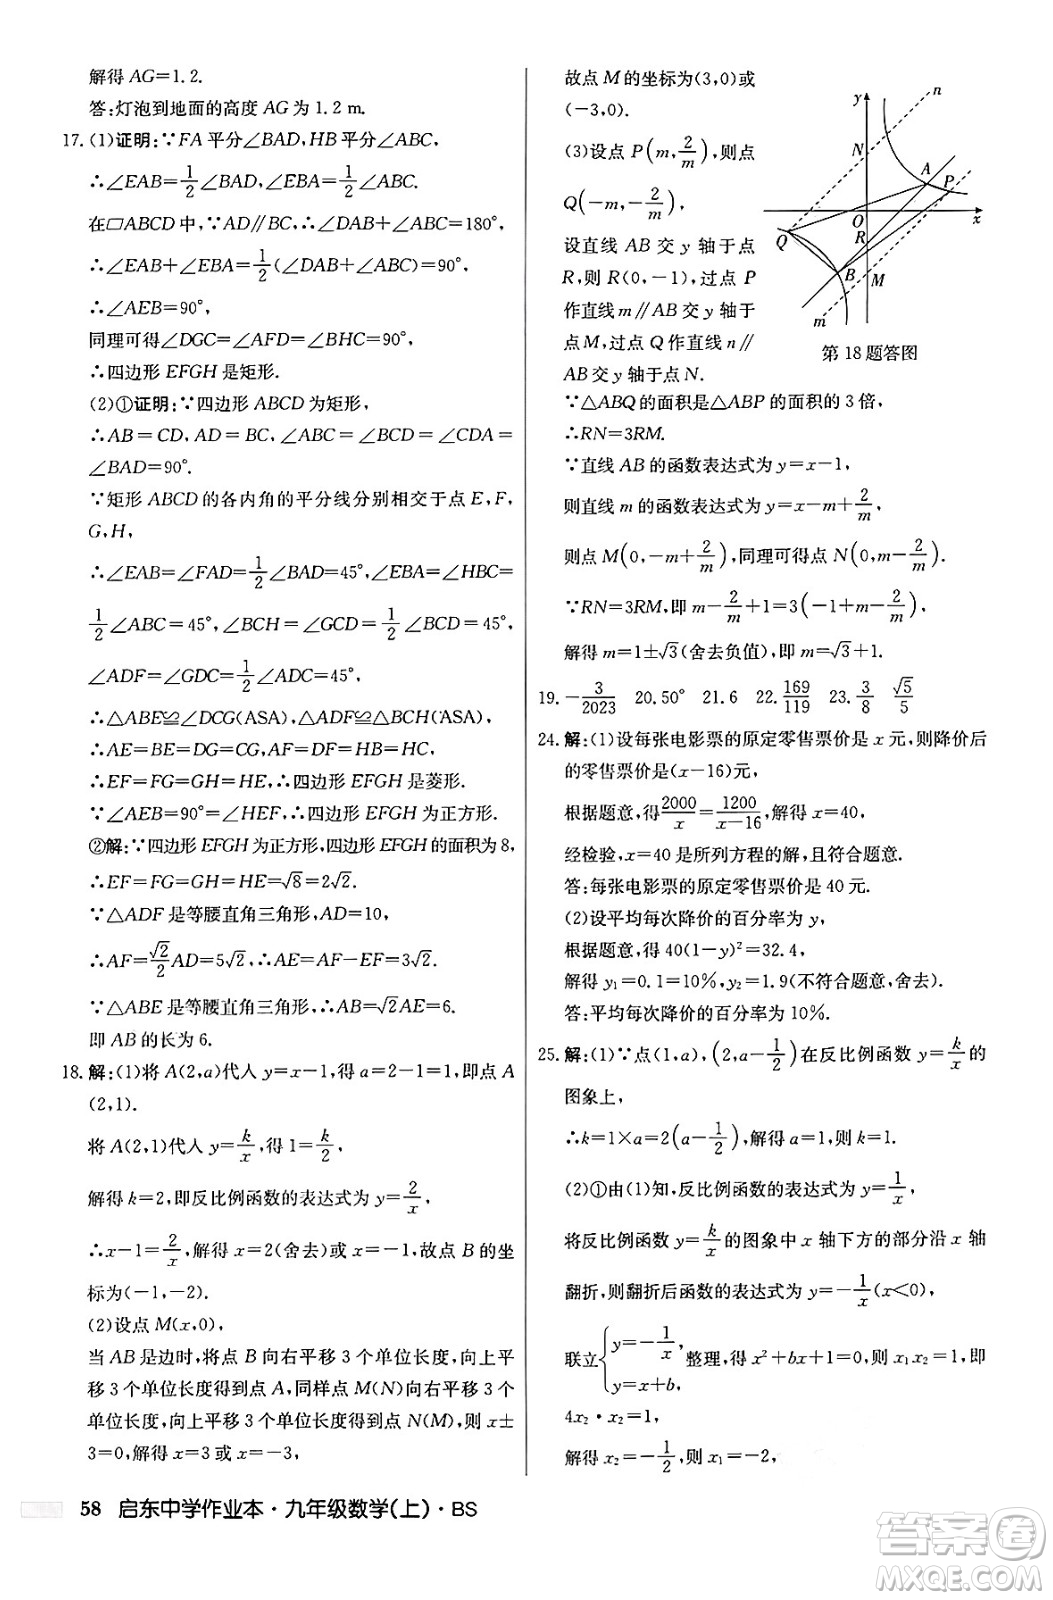 解得 AG=1.2.
答:灯泡到地面的高度 AG 为 1.2 m.
17.(1)证明:∵FA 平分∠BAD,HB 平分∠ABC,
∴∠EAB=1/2∠BAD,∠EBA=1/2∠ABC.
在▱ABCD 中,∵AD∥BC,∴∠DAB+∠ABC=180°,
∴∠EAB+∠EBA=1/2(∠DAB+∠ABC)=90°,
∴∠AEB=90°,
同理可得∠DGC=∠AFD=∠BHC=90°,
∴四边形 EFGH 是矩形.
(2)①证明:∵四边形 ABCD 为矩形,
∴AB=CD,AD=BC,∠ABC=∠BCD=∠CDA=
∠BAD=90°.
∵矩形 ABCD 的各内角的平分线分别相交于点 E,F,
G,H,
∴∠EAB=∠FAD=1/2∠BAD=45°,∠EBA=∠HBC=
1/2∠ABC=45°,∠BCH=∠GCD=1/2∠BCD=45°,
∠ADF=∠GDC=1/2∠ADC=45°.
∴△ABE≌△DCG(ASA),△ADF≌△BCH(ASA),
∴AE=BE=DG=CG,AF=DF=BH=CH,
∴EF=FG=GH=HE,∴四边形 EFGH 是菱形.
∵∠AEB=90°=∠HEF,∴四边形 EFGH 为正方形.
②解:∵四边形 EFGH 为正方形,四边形 EFGH 的面积为 8,
∴EF=FG=GH=HE=√8=2√2.
∵△ADF 是等腰直角三角形,AD=10,
∴AF=√2/2AD=5√2,∴AE=AF−EF=3√2.
∵△ABE 是等腰直角三角形,∴AB=√2AE=6.
即 AB 的长为 6.
18.解:(1)将 A(2,a)代人 y=x−1,得 a=2−1=1,即点 A
(2,1).
将 A(2,1)代人 y=k/x,得 1=k/2,
解得 k=2,即反比例函数的表达式为 y=2/x,
∴x−1=2/x,解得 x=2(舍去)或 x=−1,故点 B 的坐
标为(−1,−2).
(2)设点 M(x,0),
当 AB 是边时,将点 B 向右平移 3 个单位长度,向上平
移 3 个单位长度得到点 A,同样点 M(N)向右平移 3 个
单位长度,向上平移 3 个单位长度得到点 N(M),则 x±
3=0,解得 x=3 或 x=−3,
故点 M 的坐标为(3,0)或
(−3,0).
(3)设点 P(m,2/m),则点
Q(−m,−2/m),
设直线 AB 交 y 轴于点
R,则 R(0,−1),过点 P
作直线 m∥AB 交 y 轴于
点 M,过点 Q 作直线 n∥
AB 交 y 轴于点 N.
y
n
N
A
P
O
x
Q
R
B
M
m
第 18 题答图
∵△ABQ 的面积是△ABP 的面积的 3 倍,
∴RN=3RM.
∵直线 AB 的函数表达式为 y=x−1,
则直线 m 的函数表达式为 y=x−m+2/m,
则点 M(0,−m+2/m),同理可得点 N(0,m−2/m).
∵RN=3RM,即 m−2/m+1=3(−1+m−2/m),
解得 m=1±√3(舍去负值),即 m=√3+1.
19.−3/2023 20.50° 21.6 22.169/119 23.3/8 √5/5
24.解:(1)设每张电影票的原定零售票价是 x 元,则降价后
的零售票价是(x−16)元,
根据题意,得2000/x=1200/(x−16),解得 x=40,
经检验,x=40 是所列方程的解,且符合题意.
答:每张电影票的原定零售票价是 40 元.
(2)设平均每次降价的百分率为 y,
根据题意,得 40(1−y)²=32.4,
解得 y₁=0.1=10%,y₂=1.9(不符合题意,舍去).
答:平均每次降价的百分率为 10%.
25.解:(1)∵点(1,a),(2,a−1/2)在反比例函数 y=k/x的
图象上,
∴k=1×a=2(a−1/2),解得 a=1,则 k=1.
(2)①由(1)知,反比例函数的表达式为 y=1/x,
将反比例函数 y=k/x的图象中 x 轴下方的部分沿 x 轴
翻折,则翻折后函数的表达式为 y=−1/x(x<0),
联立{y=−1/x, y=x+b,整理,得 x²+bx+1=0,则 x₁x₂=
4x₂·x₂=1,
解得 x₂=−1/2,则 x₁=−2,
58 启东中学作业本·九年级数学(上)·BS
答案卷
MXQE.COM